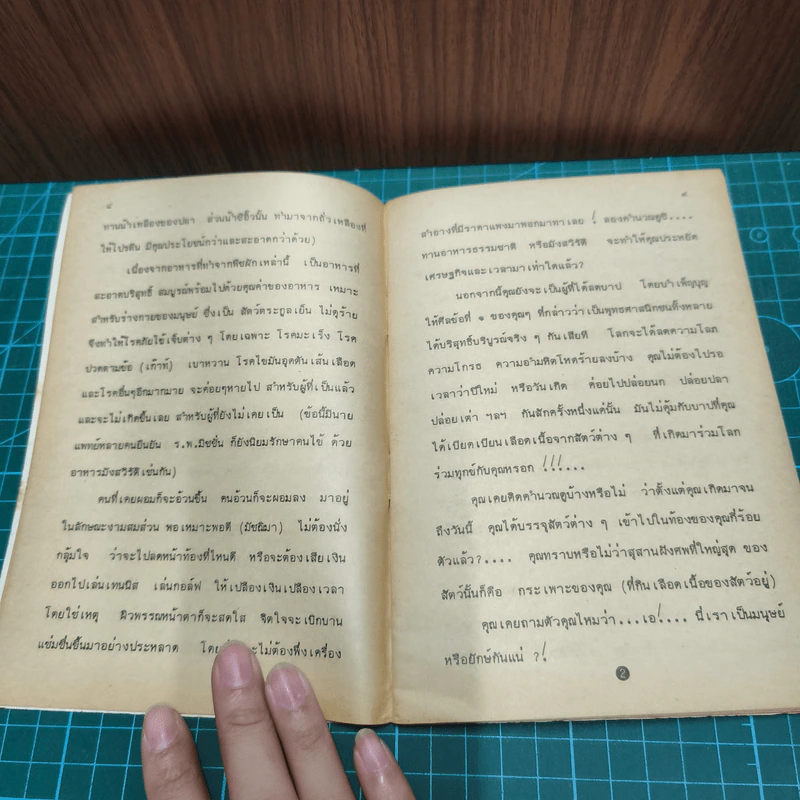 ๔
ทานน้ำเหลืองของปลา ส่วนน้ำซีอิ้วนั้น ทำมาจากถั่วเหลืองที่
ให้โปรตีน มีคุณประโยชน์กว่าและสะอาดกว่าด้วย)
เนื่องจากอาหารที่ทำจากพืชผักเหล่านี้ เป็นอาหารที่
สะอาดบริสุทธิ์ สมบูรณ์พร้อมไปด้วยคุณค่าของอาหาร เหมาะ
สำหรับร่างกายของมนุษย์ ซึ่งเป็น สัตว์ตระกูลเย็น ไม่ดุร้าย
จึงทำให้โรคภัยไข้เจ็บต่าง ๆ โดยเฉพาะ โรคมะเร็ง โรค
ปวดตามข้อ (เก๊าท์) เบาหวาน โรคไขมันอุดตันเส้นเลือด
และโรคอื่นๆอีกมากมาย จะค่อยๆหายไป สำหรับผู้ที่เป็นแล้ว
และจะไม่เกิดขึ้นเลย สำหรับผู้ที่ยังไม่เคยเป็น (ข้อนี้มีนาย
แพทย์หลายคนยืนยัน ร.พ.มิชชั่น ก็ยังนิยมรักษาคนไข้ ด้วย
อาหารมังสวิรัติเช่นกัน)
คนที่เคยผอมก็จะอ้วนขึ้น คนอ้วนก็จะผอมลง มาอยู่
ในลักษณะงามสมส่วน พอเหมาะพอดี (มัชฌิมา) ไม่ต้องนั่ง
กลุ้มใจ ว่าจะไปลดหน้าท้องที่ไหนดี หรือจะต้องเสียเงิน
ออกไปเล่นเทนนิส เล่นกอล์ฟ ให้เปลืองเงินเปลืองเวลา
โดยใช่เหตุ ผิวพรรณหน้าตาก็จะสดใส จิตใจจะเบิกบาน
แช่มชื่นขึ้นมาอย่างประหลาด จะไม่ต้องพึ่งเครื่อง
๕
สำอางที่มีราคาแพงมาพอกมาทาเลย ! ลองคำนวณดูซิ....
ทานอาหารธรรมชาติ หรือมังสวิรัติ จะทำให้คุณประหยัด
เศรษฐกิจและเวลามาเท่าใดแล้ว?
นอกจากนี้คุณยังจะเป็นผู้ที่ได้ลดบาป โดยบำเพ็ญบุญ
ให้ศีลข้อที่ ๑ ของคุณๆ ที่กล่าวว่าเป็นพุทธศาสนิกชนทั้งหลาย
ได้บริสุทธิ์บริบูรณ์จริง ๆ กันเสียที โลกจะได้ลดความโลภ
ความโกรธ ความอำมหิตโหดร้ายลงบ้าง คุณไม่ต้องไปรอ
เวลาว่าปีใหม่ หรือวันเกิด ค่อยไปปล่อยนก ปล่อยปลา
ปล่อยเต่า ฯลฯ กันสักครั้งหนึ่งแค่นั้น มันไม่คุ้มกับบาปที่คุณ
ได้เบียดเบียนเลือดเนื้อจากสัตว์ต่าง ๆ ที่เกิดมาร่วมโลก
ร่วมทุกข์กับคุณหรอก !!!...
คุณเคยคิดคำนวณดูบ้างหรือไม่ ว่าตั้งแต่คุณเกิดมาจน
ถึงวันนี้ คุณได้บรรจุสัตว์ต่าง ๆ เข้าไปในท้องของคุณกี่ร้อย
ตัวแล้ว?.... คุณทราบหรือไม่ว่าสุสานฝังศพที่ใหญ่สุด ของ
สัตว์นั้นก็คือ กระเพาะของคุณ (ที่กินเลือดเนื้อของสัตว์อยู่)
คุณเคยถามตัวคุณไหมว่า...เอ!.... นี่เราเป็นมนุษย์
หรือยักษ์กันแน่ ?!
2